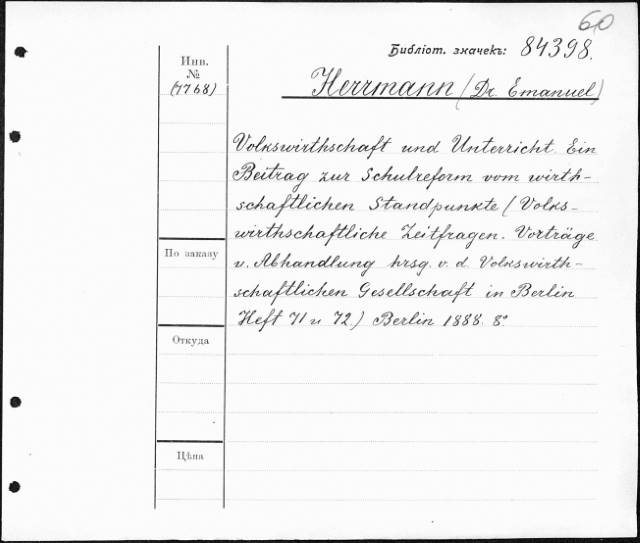 60
Библіот. значекъ: 84398.
Инв.
№
(1768)
Herrmann (Dr. Emanuel)
Volkswirthschaft und Unterricht. Ein
Beitrag zur Schulreform vom wirth-
schaftlichen Standpunkte (Volks-
wirthschaftliche Zeitfragen. Vorträge
u. Abhandlung hrsg. v. d. Volkswirth-
schaftlichen Gesellschaft in Berlin
Heft 71 u 72.) Berlin 1888. 8°
По заказу
Откуда
Цѣна